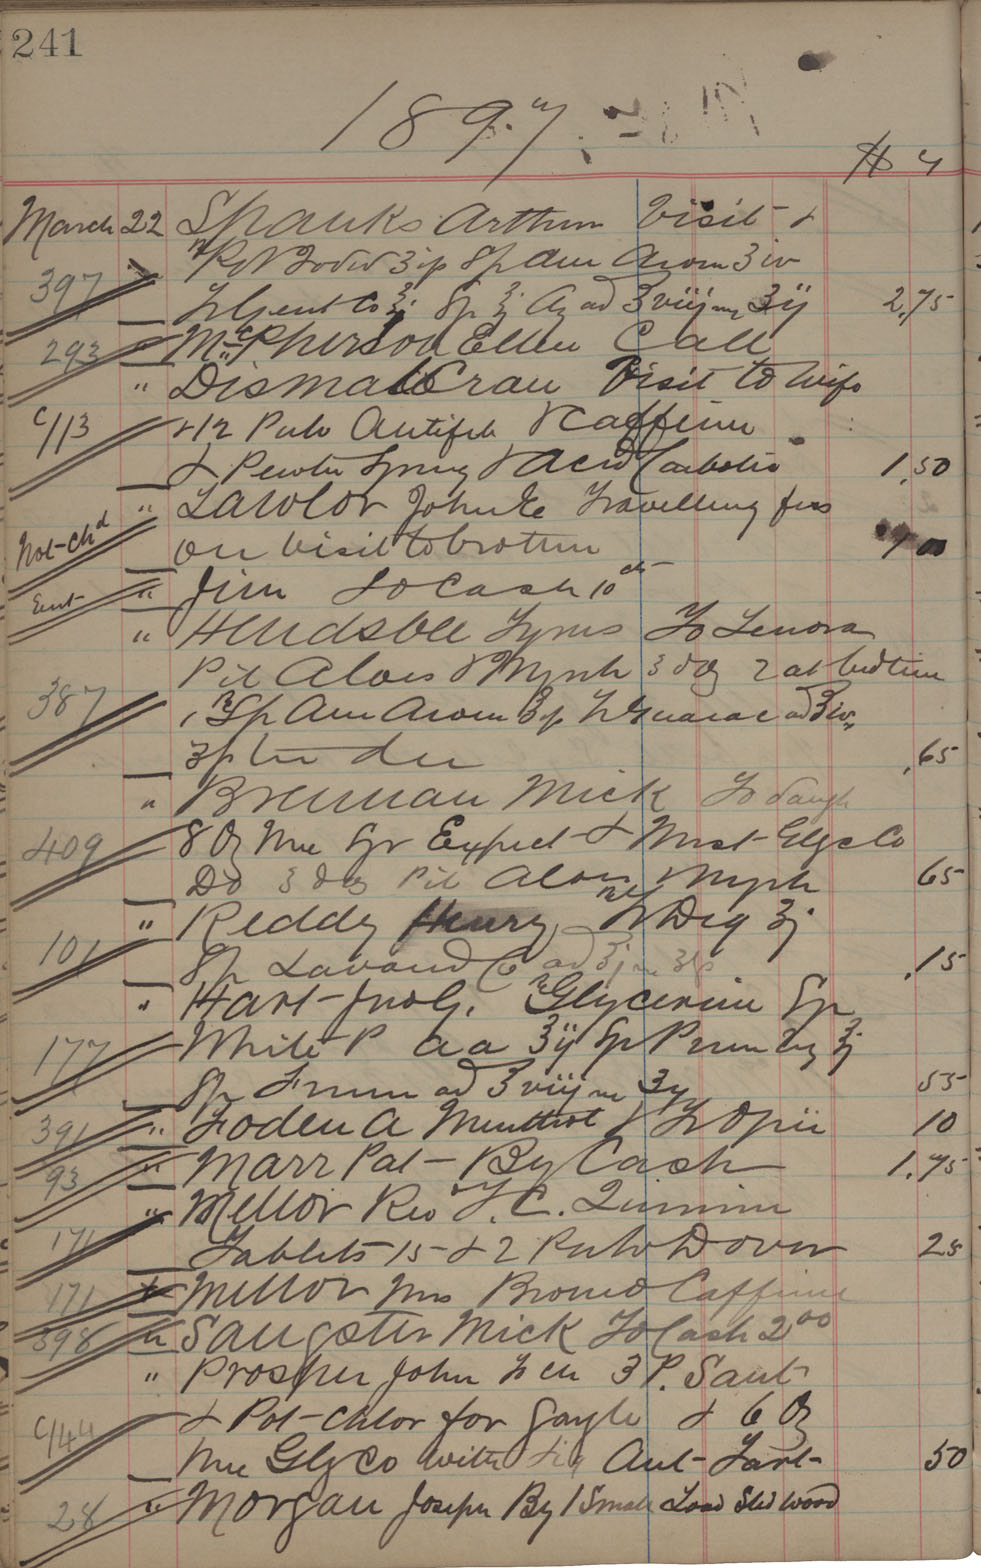 241
1897.
$ c
March 22 Spanks Arthur Visit &
Rx Pot Iodid ʒip Sp Am Arom ʒiv
397 Tr Gent Co ℥j Sp ℥j Aq ad ℥viij ʒij 2.75
293 " McPherson Ellen Call
" Dismal Crau Visit to wife
C/113 & 12 Pulv Antifeb & Caffeine
& Pewter Syring & Acid Carbolic 1.50
" Lawlor John E Travelling fees
Not-Chd on visit to brother
Ent " Jim To Cash 10cts
" Hendsbee Cyrus To Lenora
Pil Aloes & Myrrh 3 dog 2 at bedtime
387 Sp Am Arom Tr Guaiac ad ℥iv
.65
" Brennan Mick To daugh
409 8 Oz Mix Syr Expect & Mist Glyc Co
Do 3 dog Pil Aloes & Myrrh 65
" Reddy Henry Tr Dig ℥j
101 Sp Lavand Co ad .15
" Hart Jno G. Rx Glycerine Sp
177 White P aa ℥ij Sp Prun Virg ℥j
Sp Frum ad ℥viij ʒij 55
391 " Foden A Menthol & Tr Opii 10
93 " Marr Pat - By Cash 1.75
" Mellor Rev T. C. Quinine
171 Tablets 15 & 2 Pulv Dover 25
171 " Mellor Mrs Bromo Caffeine
398 " Sangster Mick To Cash 2.00
" Prosper John To 3 P. Sant
C/144 & Pot-Chlor for gargle & 6 Oz
Mix Gly Co with Liq Ant-Tart- 50
28 " Morgan Joseph By 1 Small Load Sled Wood